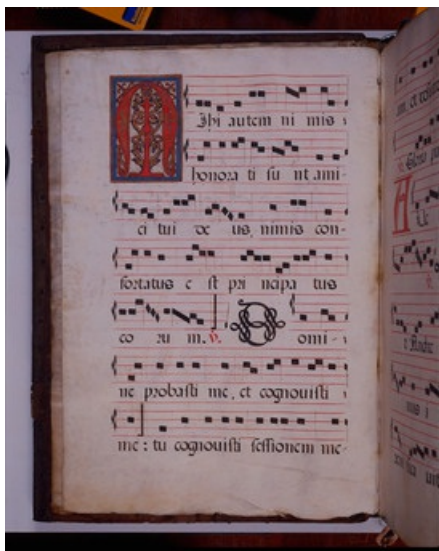 Mihi autem ni mis
honora ti su nt ami-
ci tui de us, nimis con-
fortatus e st pri ncipa tus
eo ru m. ℣. Domi-
ne probasti me, et cognouisti
me: tu cognouisti sessionem me-